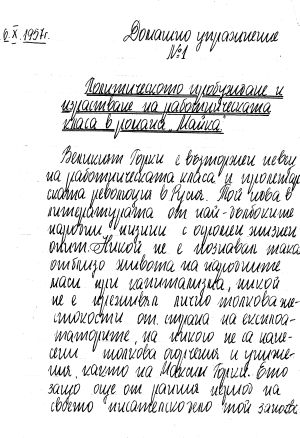 6.X.1957г.
Домашно упражнение
№1
Политическото пробуждане и
израстване на работническата
класа в романа „Майка"
Великият Горки е възторжен певец
на работническата класа и пролетар
ската революция в Русия. Той идва в
литературата от най-дълбоките
народни низини с огромен жизнен
опит. Никой не е познавал така
отблизо живота на народните
маси при капитализма, никой
не е преживял лично толкова же-
стокости от страна на експлоа-
таторите, на никого не са нане-
сени толкова огорчения и униже-
ния, както на Максим Горки. Ето
защо още от ранния период на
своето писателско дело той заживя